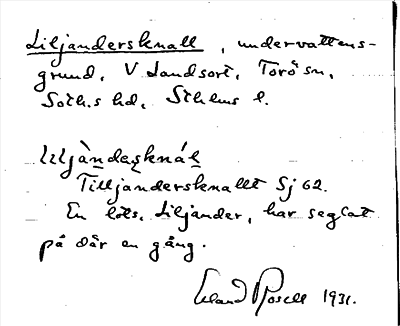 Liljandersknall, undervattens-
grund, V Landsort, Torö sn,
Soth.s hd, Sthlms l.
Tilljandersknallt Sj 62.
En lots, Liljander, har seglat
på där en gång.
Erland Rosell 1931.